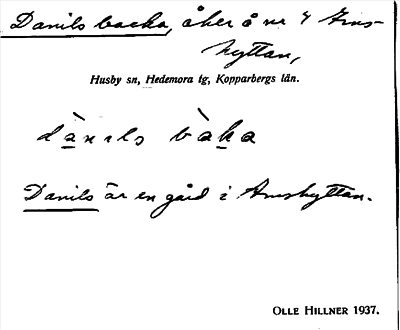 Danils backa, åker å nr 4 Ams-
hyttan,
Husby sn, Hedemora tg, Kopparbergs län.
dànils bàka
Danils är en gård i Amshyttan.
OLLE HILLNER 1937.